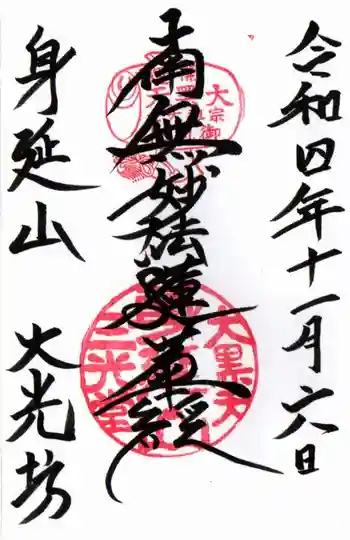 令和四年十一月六日
南無妙法蓮華経
大黒天
三光堂
身延山 大光坊